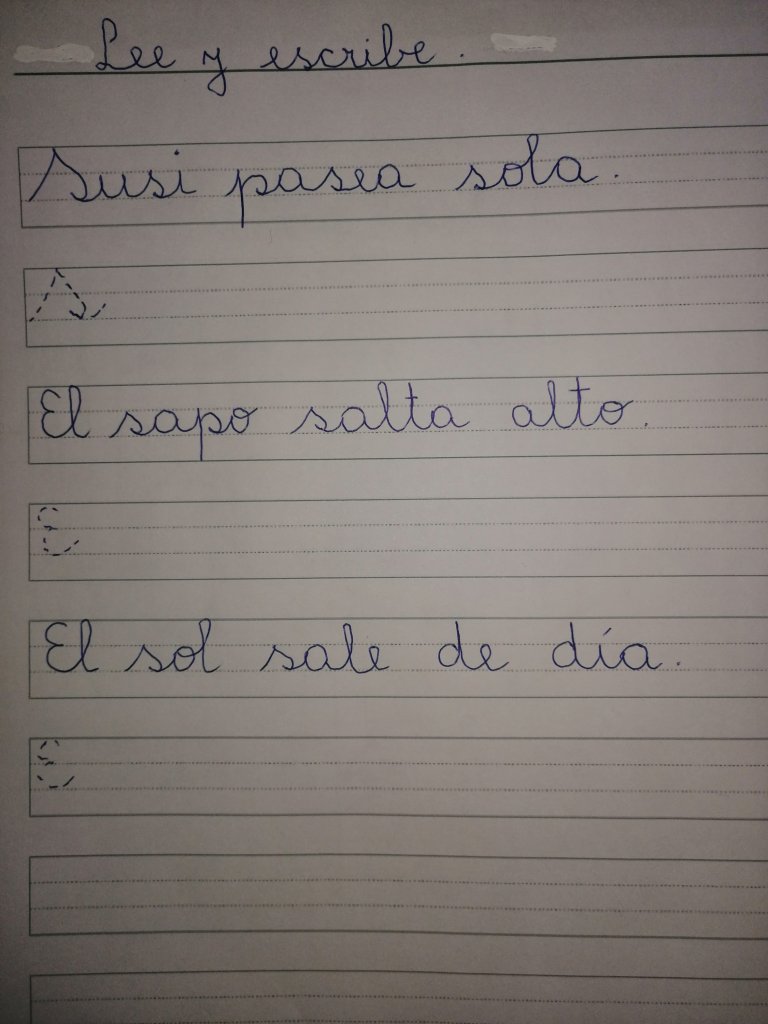 Lee y escribe.
Susi pasea sola.
S
El sapo salta alto.
E
El sol sale de día.
E